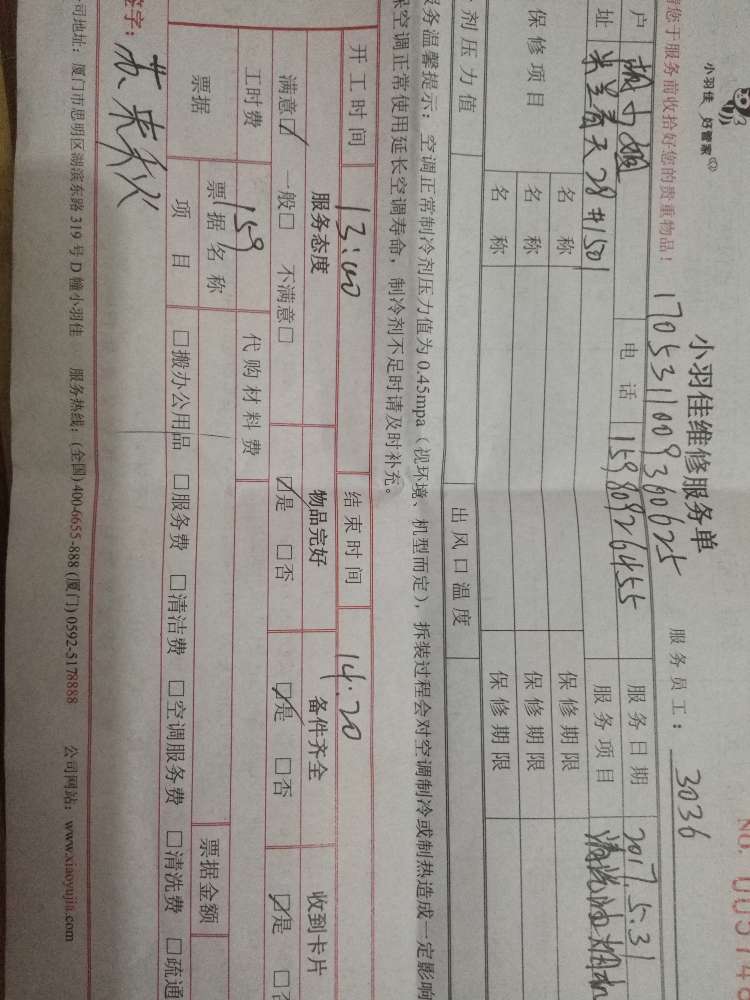 小羽佳 好管家
小羽佳维修服务单
NO.
您于服务前收拾好您的贵重物品!
1705311009360625
服务员工: 3036
户
电话 15980926455
服务日期 2017.5.31
址 米兰春天28#1501
服务项目 清洗油烟机
保修项目
名称 保修期限
名称 保修期限
名称 保修期限
剂压力值 出风口温度
务温馨提示: 空调正常制冷剂压力值为0.45mpa(视环境、机型而定),拆装过程会对空调制冷或制热造成一定影响
保空调正常使用延长空调寿命,制冷剂不足时请及时补充。
开工时间 13:00 结束时间 14:20
服务态度 物品完好 备件齐全 收到卡片
满意☑ 一般□ 不满意□ ☑是 □否 ☑是 □否 ☑是 □否
工时费 159 代购材料费
票据 票据名称 票据金额
项目 □搬办公用品 □服务费 □清洁费 □空调服务费 □清洗费 □疏通
签字:
司地址: 厦门市思明区湖滨东路319号D幢小羽佳 服务热线: (全国)400-6655-888 (厦门)0592-5178888 公司网站: www.xiaoyujia.com